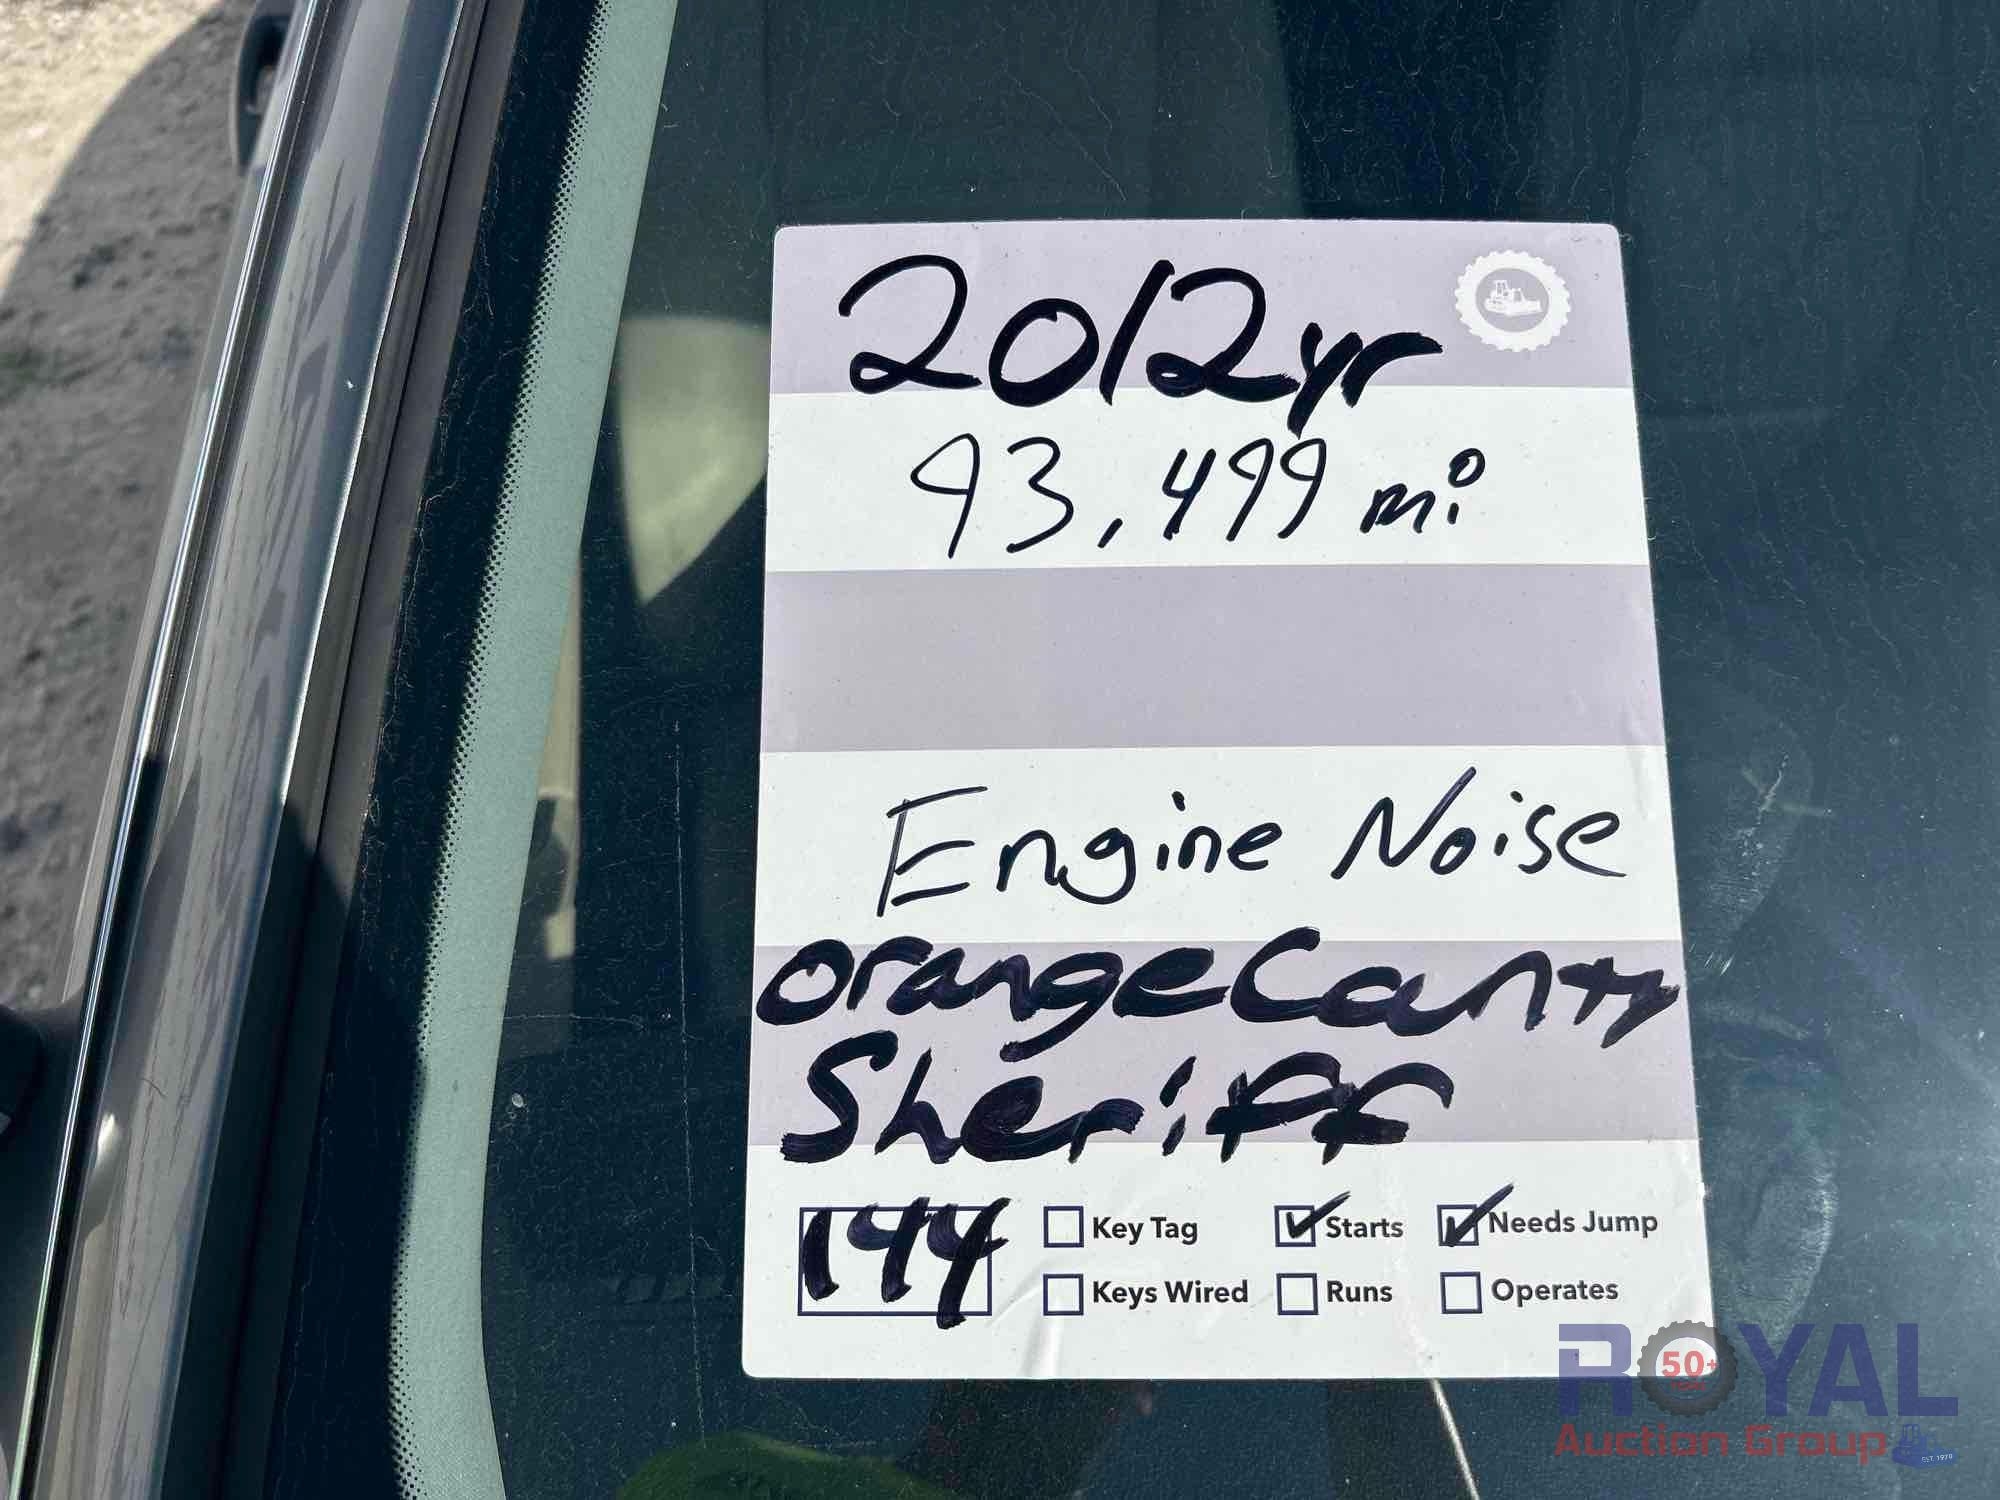 2012yr
93,499 mi
Engine Noise
Orange County
Sheriff
144
Key Tag
Starts
Needs Jump
Keys Wired
Runs
Operates
ROYAL
50+
Auction Group
EST. 1979